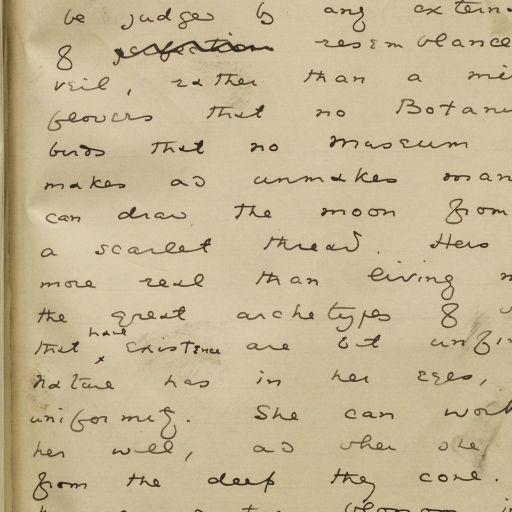 be judged by any extern
of resemblance
veil, rather than a mi
flowers that no Botan
birds that no Museum
makes and unmakes man
can draw the moon from
a scarlet thread. Hers
more real than living m
the great archetypes of
that have existence are but unfin
Nature has in her eyes,
uniformity. She can work
her will, and when she
from the deep they come.